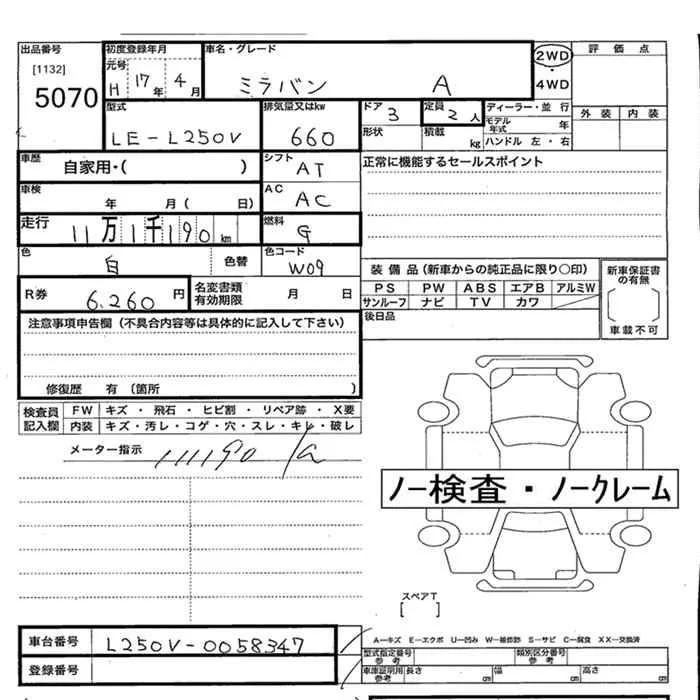 出品番号
[1132]
5070
初度登録年月
元号
H 17年 4月
車名・グレード
ミラバン A
2WD
・
4WD
評価点
外装 内装
型式
LE-L250V
排気量又はkw
660
ドア
3
定員
2人
形状
積載
kg
ディーラー・並 行
モデル年式 年
ハンドル 左・右
車歴
自家用・( )
シフト
AT
正常に機能するセールスポイント
車検
年 月( 日)
AC
AC
走行
11万1千190km
燃料
G
色
白
色替
色コード
W09
R券
6,260円
名変書類有効期限
月 日
装備品(新車からの純正品に限り○印)
PS PW ABS エアB アルミW
サンルーフ ナビ TV カワ
新車保証書の有無
車載不可
後日品
注意事項申告欄(不具合内容等は具体的に記入して下さい)
修復歴 有(箇所 )
検査員記入欄
FW キズ・飛石・ヒビ割・リペア跡・X要
内装 キズ・汚レ・コゲ・穴・スレ・キレ・破レ
メーター指示
111190
ノー検査・ノークレーム
スペアT
[ ]
車台番号
L250V-0058347
登録番号
A―キズ E―エクボ U―凹み W―補修跡 S―サビ C―腐食 XX―交換済
型式指定番号
参考
類別区分番号
参考
車庫証明用
参考
長さ cm 幅 cm 高さ cm